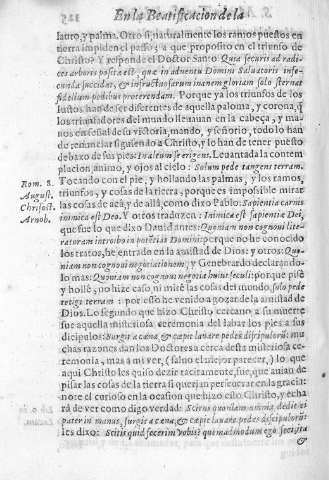 En la Beatificacion de la
lauro, y palma. Otro si naturalmente los ramos puestos en
tierra impiden el passo; a que proposito en el triunfo de
Christo? Y responde el Doctor Santo. Quia securis ad radi-
ces arboris posita est, quæ in aduentu Domini Saluatoris info-
cunda succidat, & infructuosarum inanem gloriam solo sternat
fidelium pedibus procerendam. Porque ya los triunfos de los
Iustos han de ser diferentes de aquella paloma, y corona, q̃
los triunfadores del mundo lleuauan en la cabeça, y ma-
nos en señal de su victoria, mando, y señorio, todo lo han
de renunciar siguiendo a Christo, y lo han de tener puesto
debaxo de sus pies: In altum se erigens. Leuantada la contem
placion, animo, y ojos al cielo: Solum pede tangens terram.
Rom. 8.
August.
Chrisost.
Arnob.
Tocando con el pie, y hollando las palmas, y los ramos,
triunfos, y cosas de la tierra, porque es impossible mirar
las cosas de acà, y de allà, como dixo Pablo: Sapientia carnis
inimica est Deo. Y otros traduzen: Inimica est sapientia Dei,
que fue lo que dixo Dauid antes: Quoniam non cognoui litte-
raturam introibo in potentias Domini: porque no he conocido
los tratos, he entrado en la amistad de Dios: y otros: Quo-
niam non cognoui negociationem, y Genebrardo declarando-
lo mas: Quoniam non cognoui negotia huius seculi: porque pise
y hollè, no hize caso ni mirè las cosas del mundo, solo pede
tetigi terram: por esso he venido a gozar de la amistad de
Dios. Lo segundo que hizo Christo cercano a su muerte
fue aquella misteriosa ceremonia del labar los pies a sus
dicipulos: Surgit a cæna, & cæpit lauare pedes discipulorũ: mu
chas razones dan los Doctores a cerca desta misteriosa ce-
remonia, mas a mi ver, (saluo el mejor parecer,) lo que
aqui Christo les quiso dezir tacitamente, fue, que auian de
pisar las cosas de la tierra si querian perseuerar en la gracia:
note el curioso en la ocasion que hizo esto Christo, y echa
rà de ver como digo verdad: Sciens quoniam omnia dedit ei
pater in manus, surgit a cæna, & cæpit lauare pedes discipulorũ:
les dixo: Scitis quid fecerim vobis? quemadmodum ego feci, ita
&